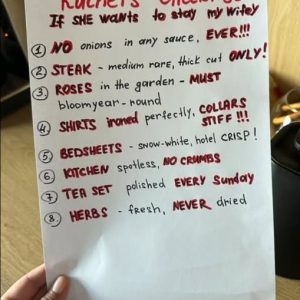 If SHE wants to stay my wifey
1 NO onions in any sauce, EVER!!!
2 STEAK - medium rare, thick cut ONLY!
3 ROSES in the garden - MUST
bloom year-round
4 SHIRTS ironed perfectly, COLLARS
STIFF !!!
5 BEDSHEETS - snow-white, hotel CRISP!
6 KITCHEN spotless, NO CRUMBS
7 TEA SET polished EVERY Sunday
8 HERBS - fresh, NEVER dried